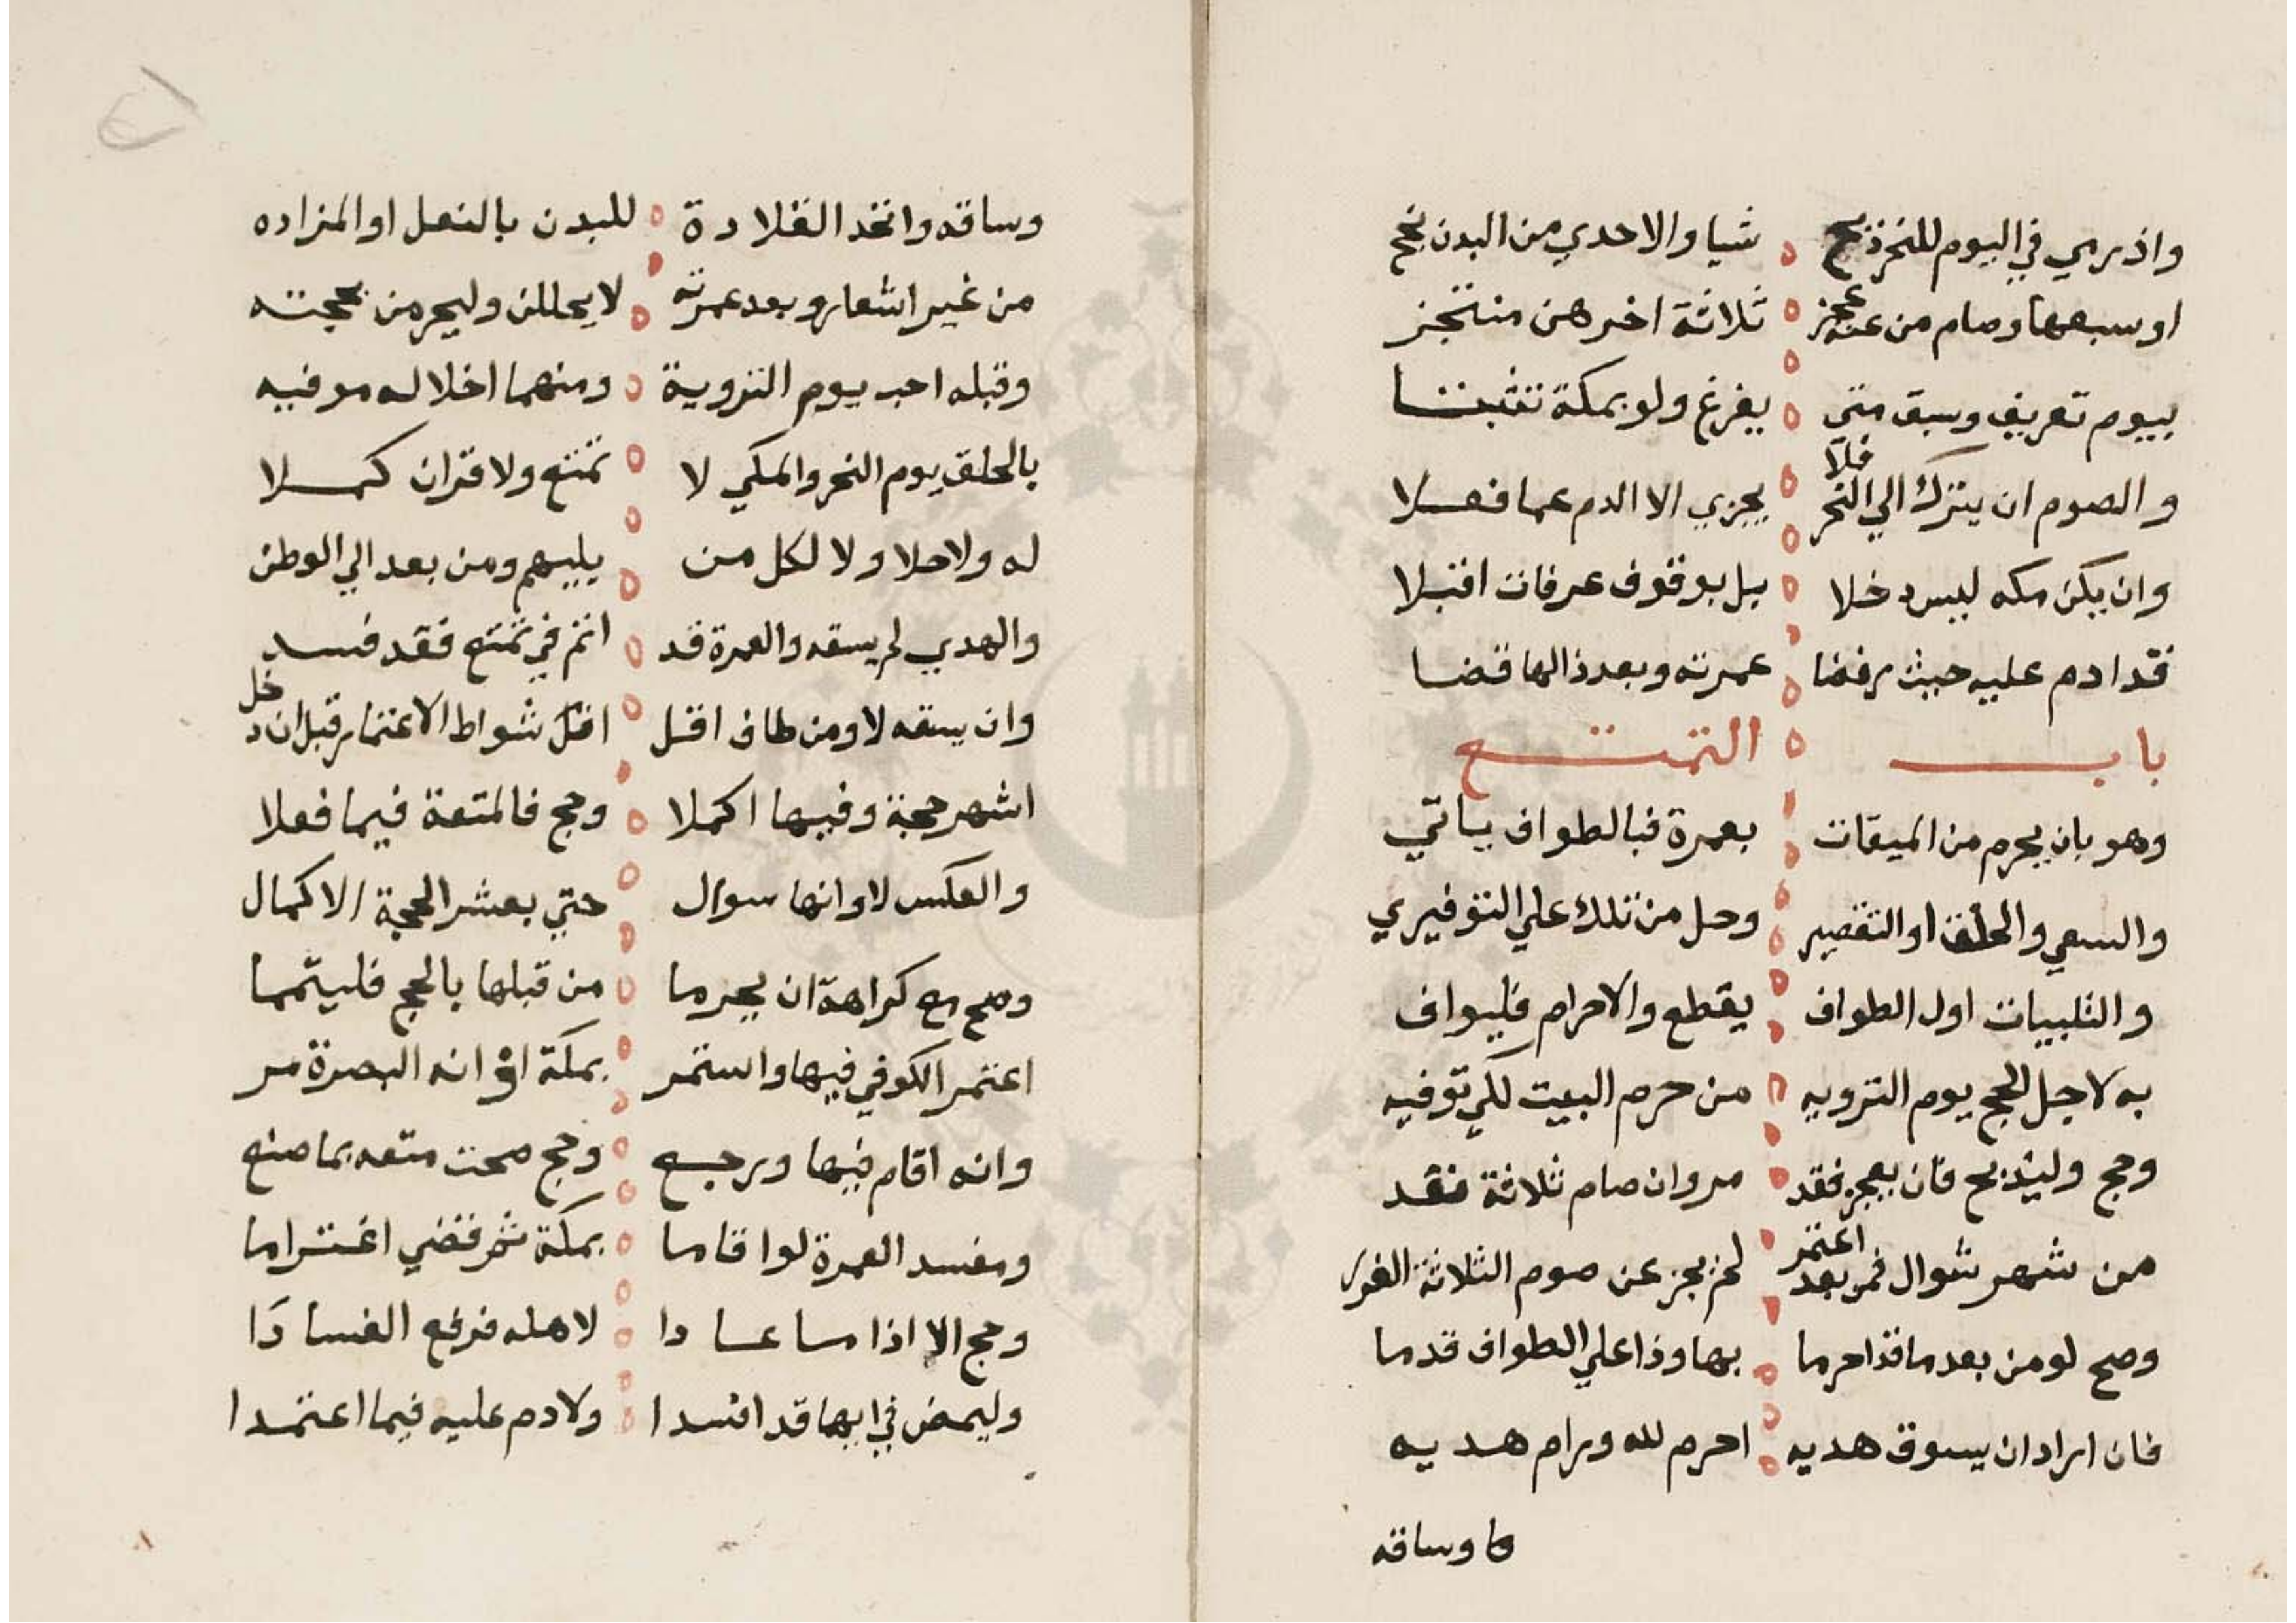 واذ رمي في اليوم للنحر ذبح شيا والاحدي من البدن نجح
او سبعها وصام من عنه عجز ثلاثة اخرهن منتجز
بيوم تعريف وسبق متى يفرغ ولو بمكة تثبتا
والصوم ان يترك الي النحر فلا يجزي الا الدم عما فعلا
وان يكن مكه ليس دخلا بل بوقوف عرفات اقتبلا
قدا دم عليه حيث رفضا عمرته وبعد ذا لها قضا
باب التمتع
وهو بان يحرم من الميقات بعمرة فبالطواف ياتي
والسعي والحلق او التقصير وحل من تلك علي التوفيري
والتلبيات اول الطواف يقطع والاحرام فليواف
به لاجل الحج يوم الترويه من حرم البيت لكي توفيه
وحج وليذبح فان يعجز فقد مر وان صام ثلاثة فقد
من شهر شوال فمر بعد اعتمر لم يجز عن صوم الثلاثة الغرر
وصح لو من بعد ما قد احرما بها وذا علي الطواف قدما
فان اراد ان يسوق هديه احرم لله ورام هديه
وساقه
وساقه واتخد القلادة للبدن بالنعل او المزاده
من غير اشعار وبعد عمرته لا يحللن وليحرمن بحجته
وقبله احب يوم التروية ومنهما اخلاله موفيه
بالحلق يوم النحر والمكي لا تمتع ولا قران كملا
له ولاحلا ولا لكل من يليهم ومن بعد الي الوطن
والهدي لم يسقه والعمرة قد اتم في تمتع فقد فسد
وان يسقه لا ومن طاف اقل اقل شواط الاعتمار قبل ان دخل
اشهر حجة وفيها اكملا وحج فالمتعة فيما فعلا
والعكس لا وانها سوال حتي بعشر الحجة الاكمال
وصح مع كراهة ان يحرما من قبلها بالحج فليتمما
اعتمر الكوفي فيها واستمر بمكة او انه البصرة مر
وانه اقام فيها ورجع وحج صحت متعه بما صنع
ومفسد العمرة لو اقاما بمكة ثم قضي اغتراما
وحج الا اذا ما عادا لاهله فرفع الفسادا
وليمض في ايها قد افسدا ولا دم عليه فيما اعتمدا